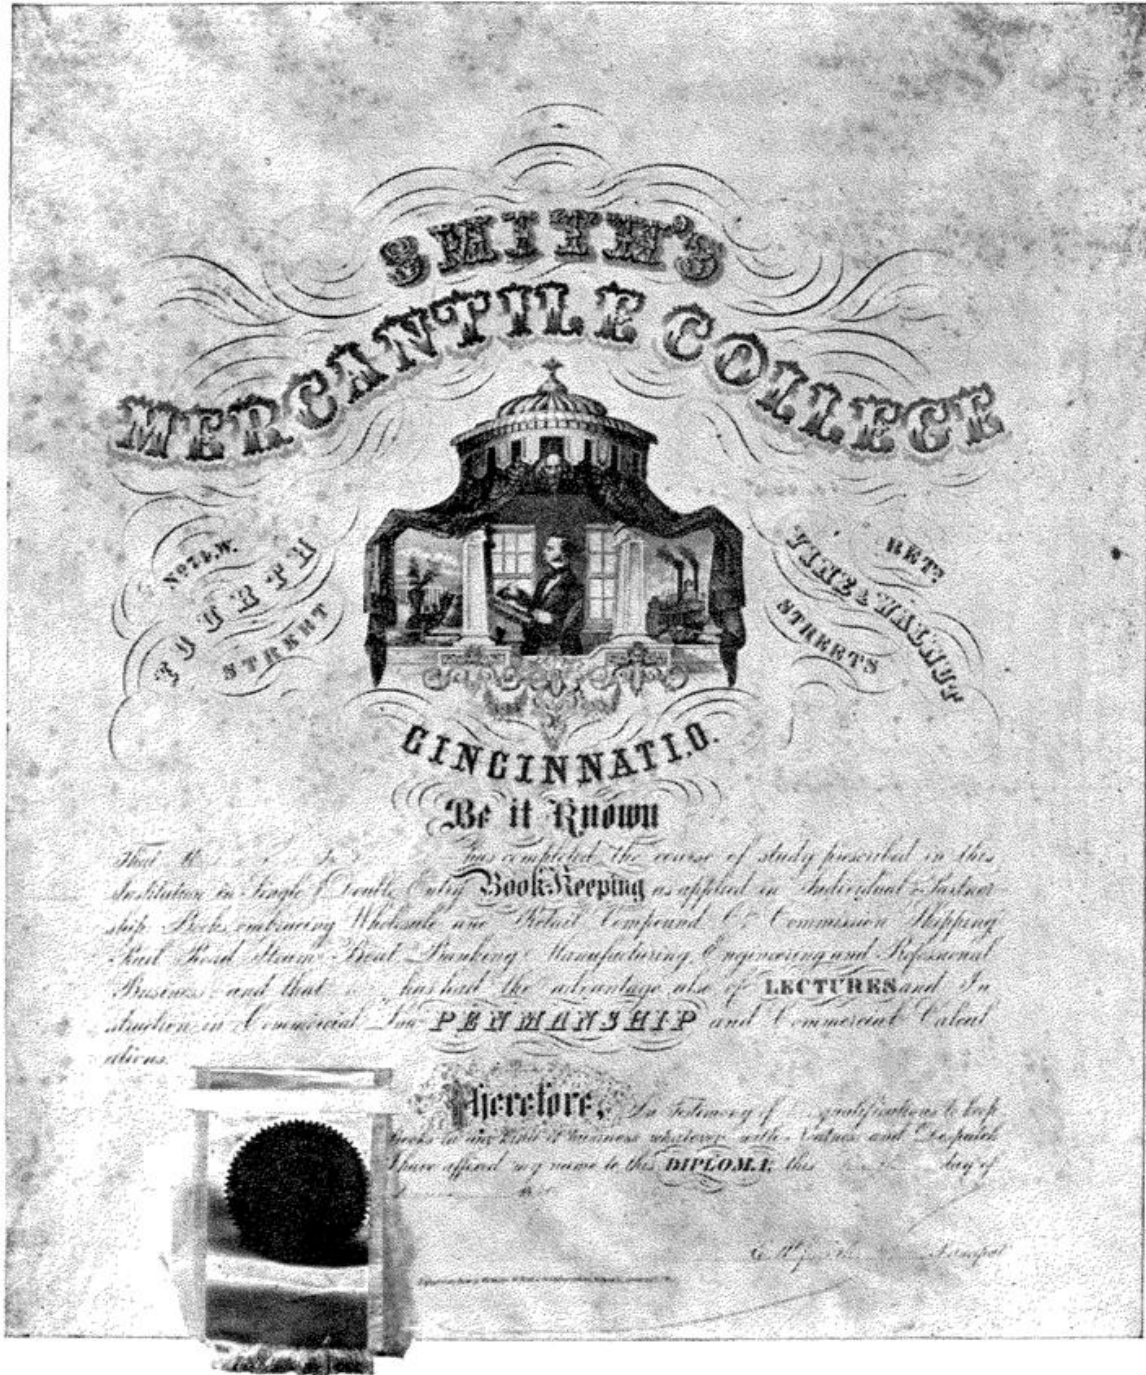 SMITH'S
MERCANTILE COLLEGE
FOURTH
STREET
BETN
VINE & WALNUT
STREETS
CINCINNATI, O.
Be it Known
That has completed the course of study prescribed in this
Institution in Single & Double Entry Book Keeping as applied in Individual & Partner
ship Books embracing Wholesale and Retail Compound Co. Commission Shipping
Rail Road Steam Boat Banking Manufacturing, Engineering and Professional
Business and that has had the advantage also of LECTURES and In
struction in Commercial Law PENMANSHIP and Commercial Calcul
ations.
Therefore, In Testimony of qualifications to keep
Books in any kind of business whatever with and Despatch
I have affixed my name to this DIPLOMA, this day of
Principal